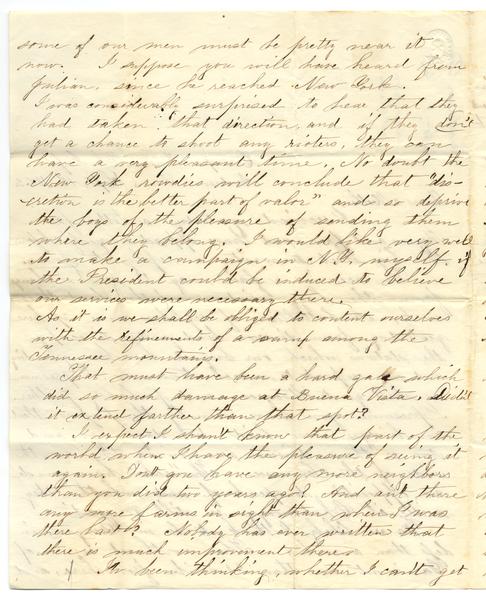 some of our men must be pretty near it
now. I suppose you will have heard from
Julian, since he reached New York.
I was considerably surprised to hear that they
had taken "that direction, and if they don't
get a chance to shoot any rioters, they can
have a very pleasant time. No doubt the
New York rowdies will conclude that "dis-
cretion is the better part of valor" and so deprive
the boys of the pleasure of sending them
where they belong. I would like very well
to make a campaign in N.Y. myself if
the President could be induced to believe
our services were necessary there.
As it is we shall be obliged to content ourselves
with the refinements of a camp among the
Tennessee mountains.
That must have been a hard gale which
did so much damage at Buena Vista. Did
it extend farther than that spot?
I expect I shan't know that part of the
world, when I have the pleasure of seeing it
again. Don't you have any more neighbors
than you did two years ago? And ain't there
any more farms in sight than when I was
there last? Nobody has ever written that
there is much improvement there.
I've been thinking, whether I can't get